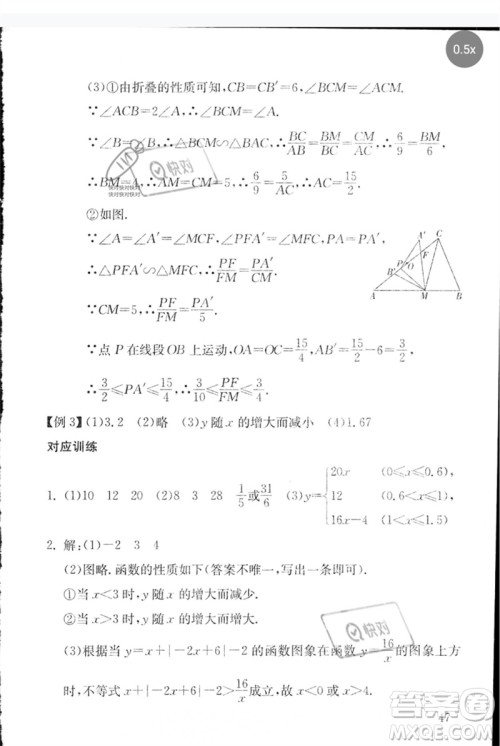 0.5x
(3)①由折叠的性质可知,CB=CB′=6,∠BCM=∠ACM.
∵∠ACB=2∠A,∴∠BCM=∠A.
∵∠B=∠B,∴△BCM∽△BAC,∴BC/AB=BM/BC=CM/AC,∴6/9=BM/6=CM/AC,
∴BM=4,∴AM=CM=5,∴6/9=5/AC,∴AC=15/2.
②如图.
∵∠A=∠A′=∠MCF,∠PFA′=∠MFC,
∴△PFA′∽△MFC,∴PF/FM=PA′/CM.
∵CM=5,∴PF/FM=PA′/5.
∵点P在线段OB上运动,OA=OC=15/4,AB′=15/2-6=3/2,
∴3/2≤PA′≤15/4,∴3/10≤PF/FM≤3/4.
A′ C
P F
B′ O
A M B
【例3】(1)3.2 (2)略 (3)y随x的增大而减小 (4)1.67
对应训练
1. (1)10 12 20 (2)8 3 28 1/5或31/6 (3)y={20x (0≤x≤0.6),
12 (0.6<x≤1),
16x-4 (1<x≤1.5)
2. 解:(1)-2 3 4
(2)图略. 函数的性质如下(答案不唯一,写一条即可).
①当x<3时,y随x的增大而减少.
②当x>3时,y随x的增大而增大.
(3)根据当y=x+|-2x+6|的函数图象在函数y=16/x的图象上方
时,不等式x+|-2x+6|>16/x成立,故x<0或x>4.
47
快对
快对
答案圈
MXQE.COM